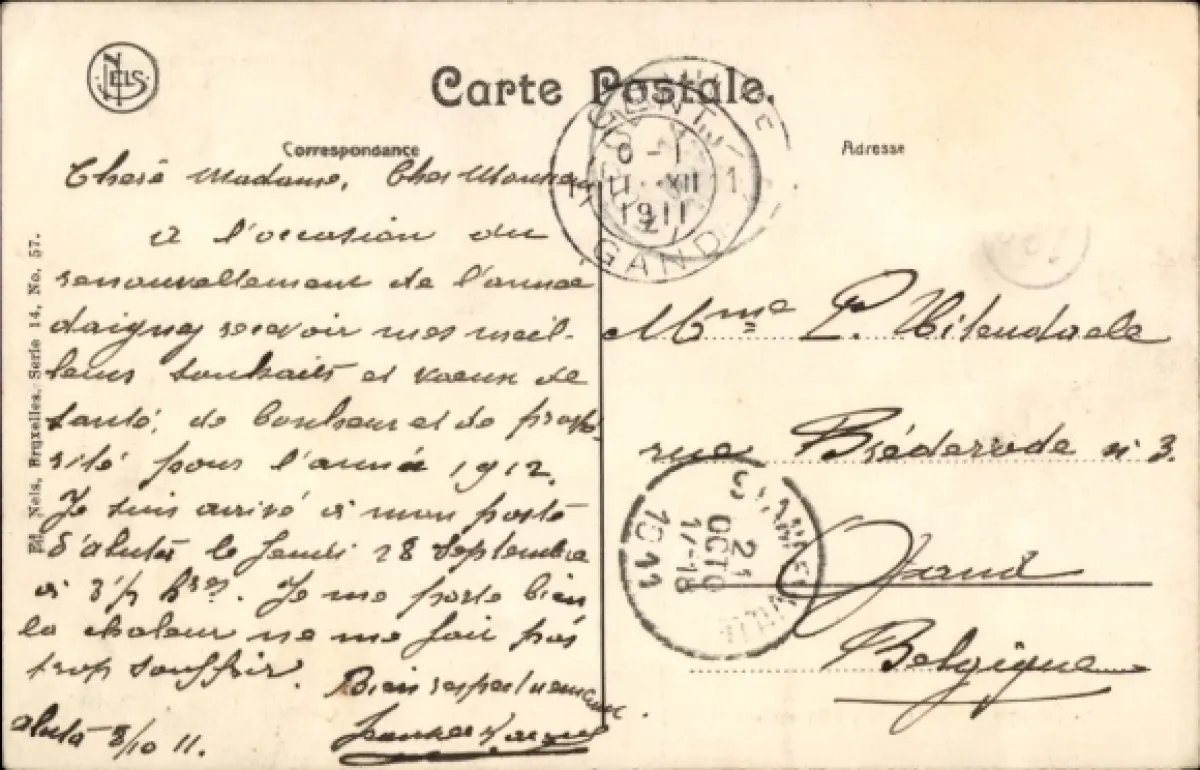 NELS
Carte Postale.
Correspondance
Adresse
Cheré Madame, Cher Monsieur
a l'occasion du
renouvellement de l'année
daigney recevoir mes meil-
leurs souhaits et voeux de
santé, de bonheur et de prospé-
rité pour l'année 1912.
Je suis arrivé à mon poste
d'aluta le Jeudi 28 Septembre
à hres. Je me porte bien
la chaleur ne me fait pas
trop souffrir.
Bien respectueusement
aluta 8/10 11.
Ed. Nels, Bruxelles. Serie 14, No. 57.
GENT
1 0 - 1 1
11 XII
1911
GAND
Mme P.
rue Bréderode n° 3.
Gand
Belgique
STANLEYVILLE
21
OCTO
17-18
1911